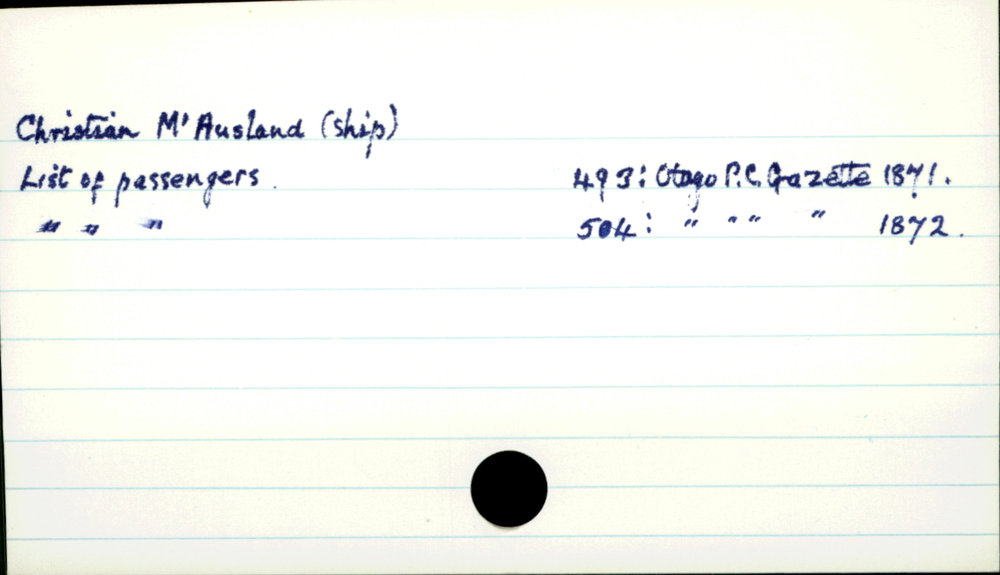 Christian M' Ausland (Ship)
List of passengers. 493: Otago P.C. Gazette 1871.
" " " 504: " " " " 1872.